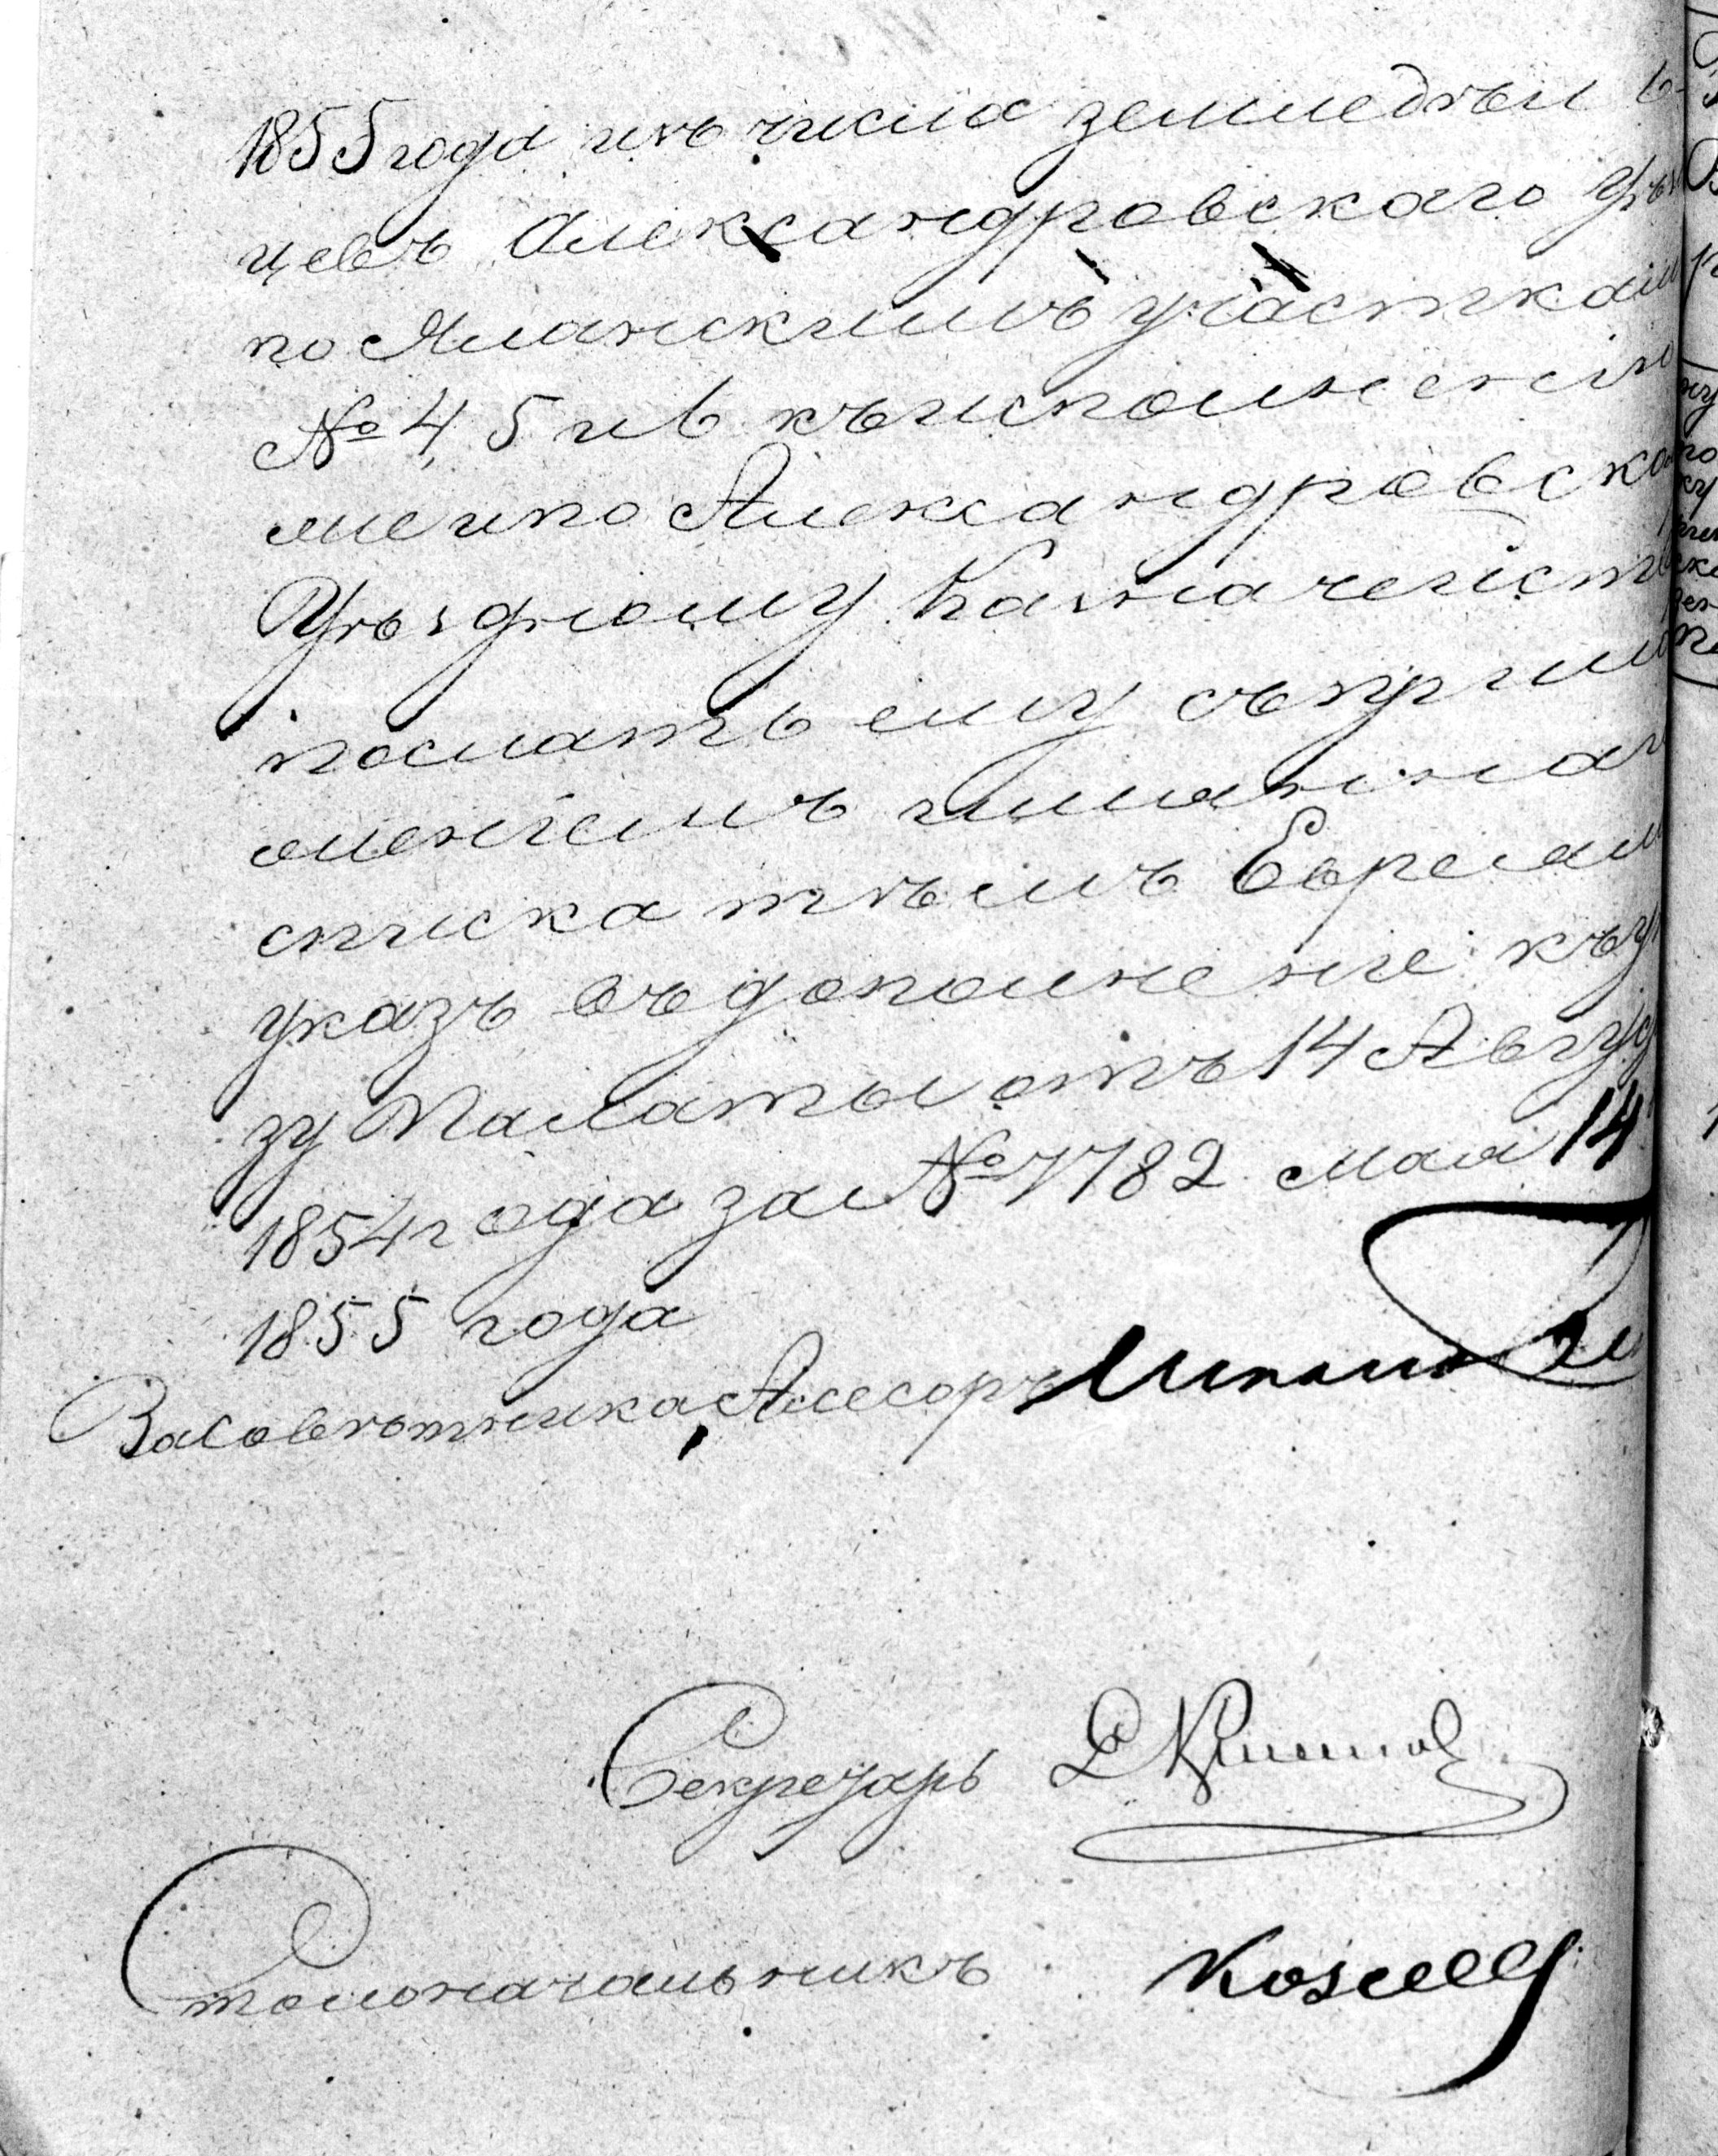 1855 года изъ числа земледѣль
цевъ Александровскаго Уѣз
по Яланскимъ участкам
№ 4, 5 и 6 къ исполненію
же и по Александровско
Уѣздному Казначейств
послать ему съ прил
женіемъ именнаг
списка тѣмъ Евреям
указъ въ дополненіе къ у
зу Палаты отъ 14 Авгус
1854 года за № 7782 Мая 14
1855 года
За Совѣтника, Ассесоръ
Секретарь
Столоначальникъ